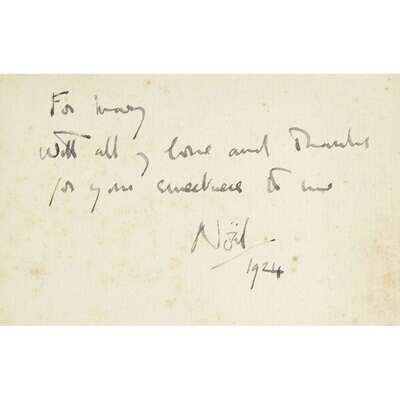 For Mary
With all my love and thanks
for your sweetness to me
Noël
1924